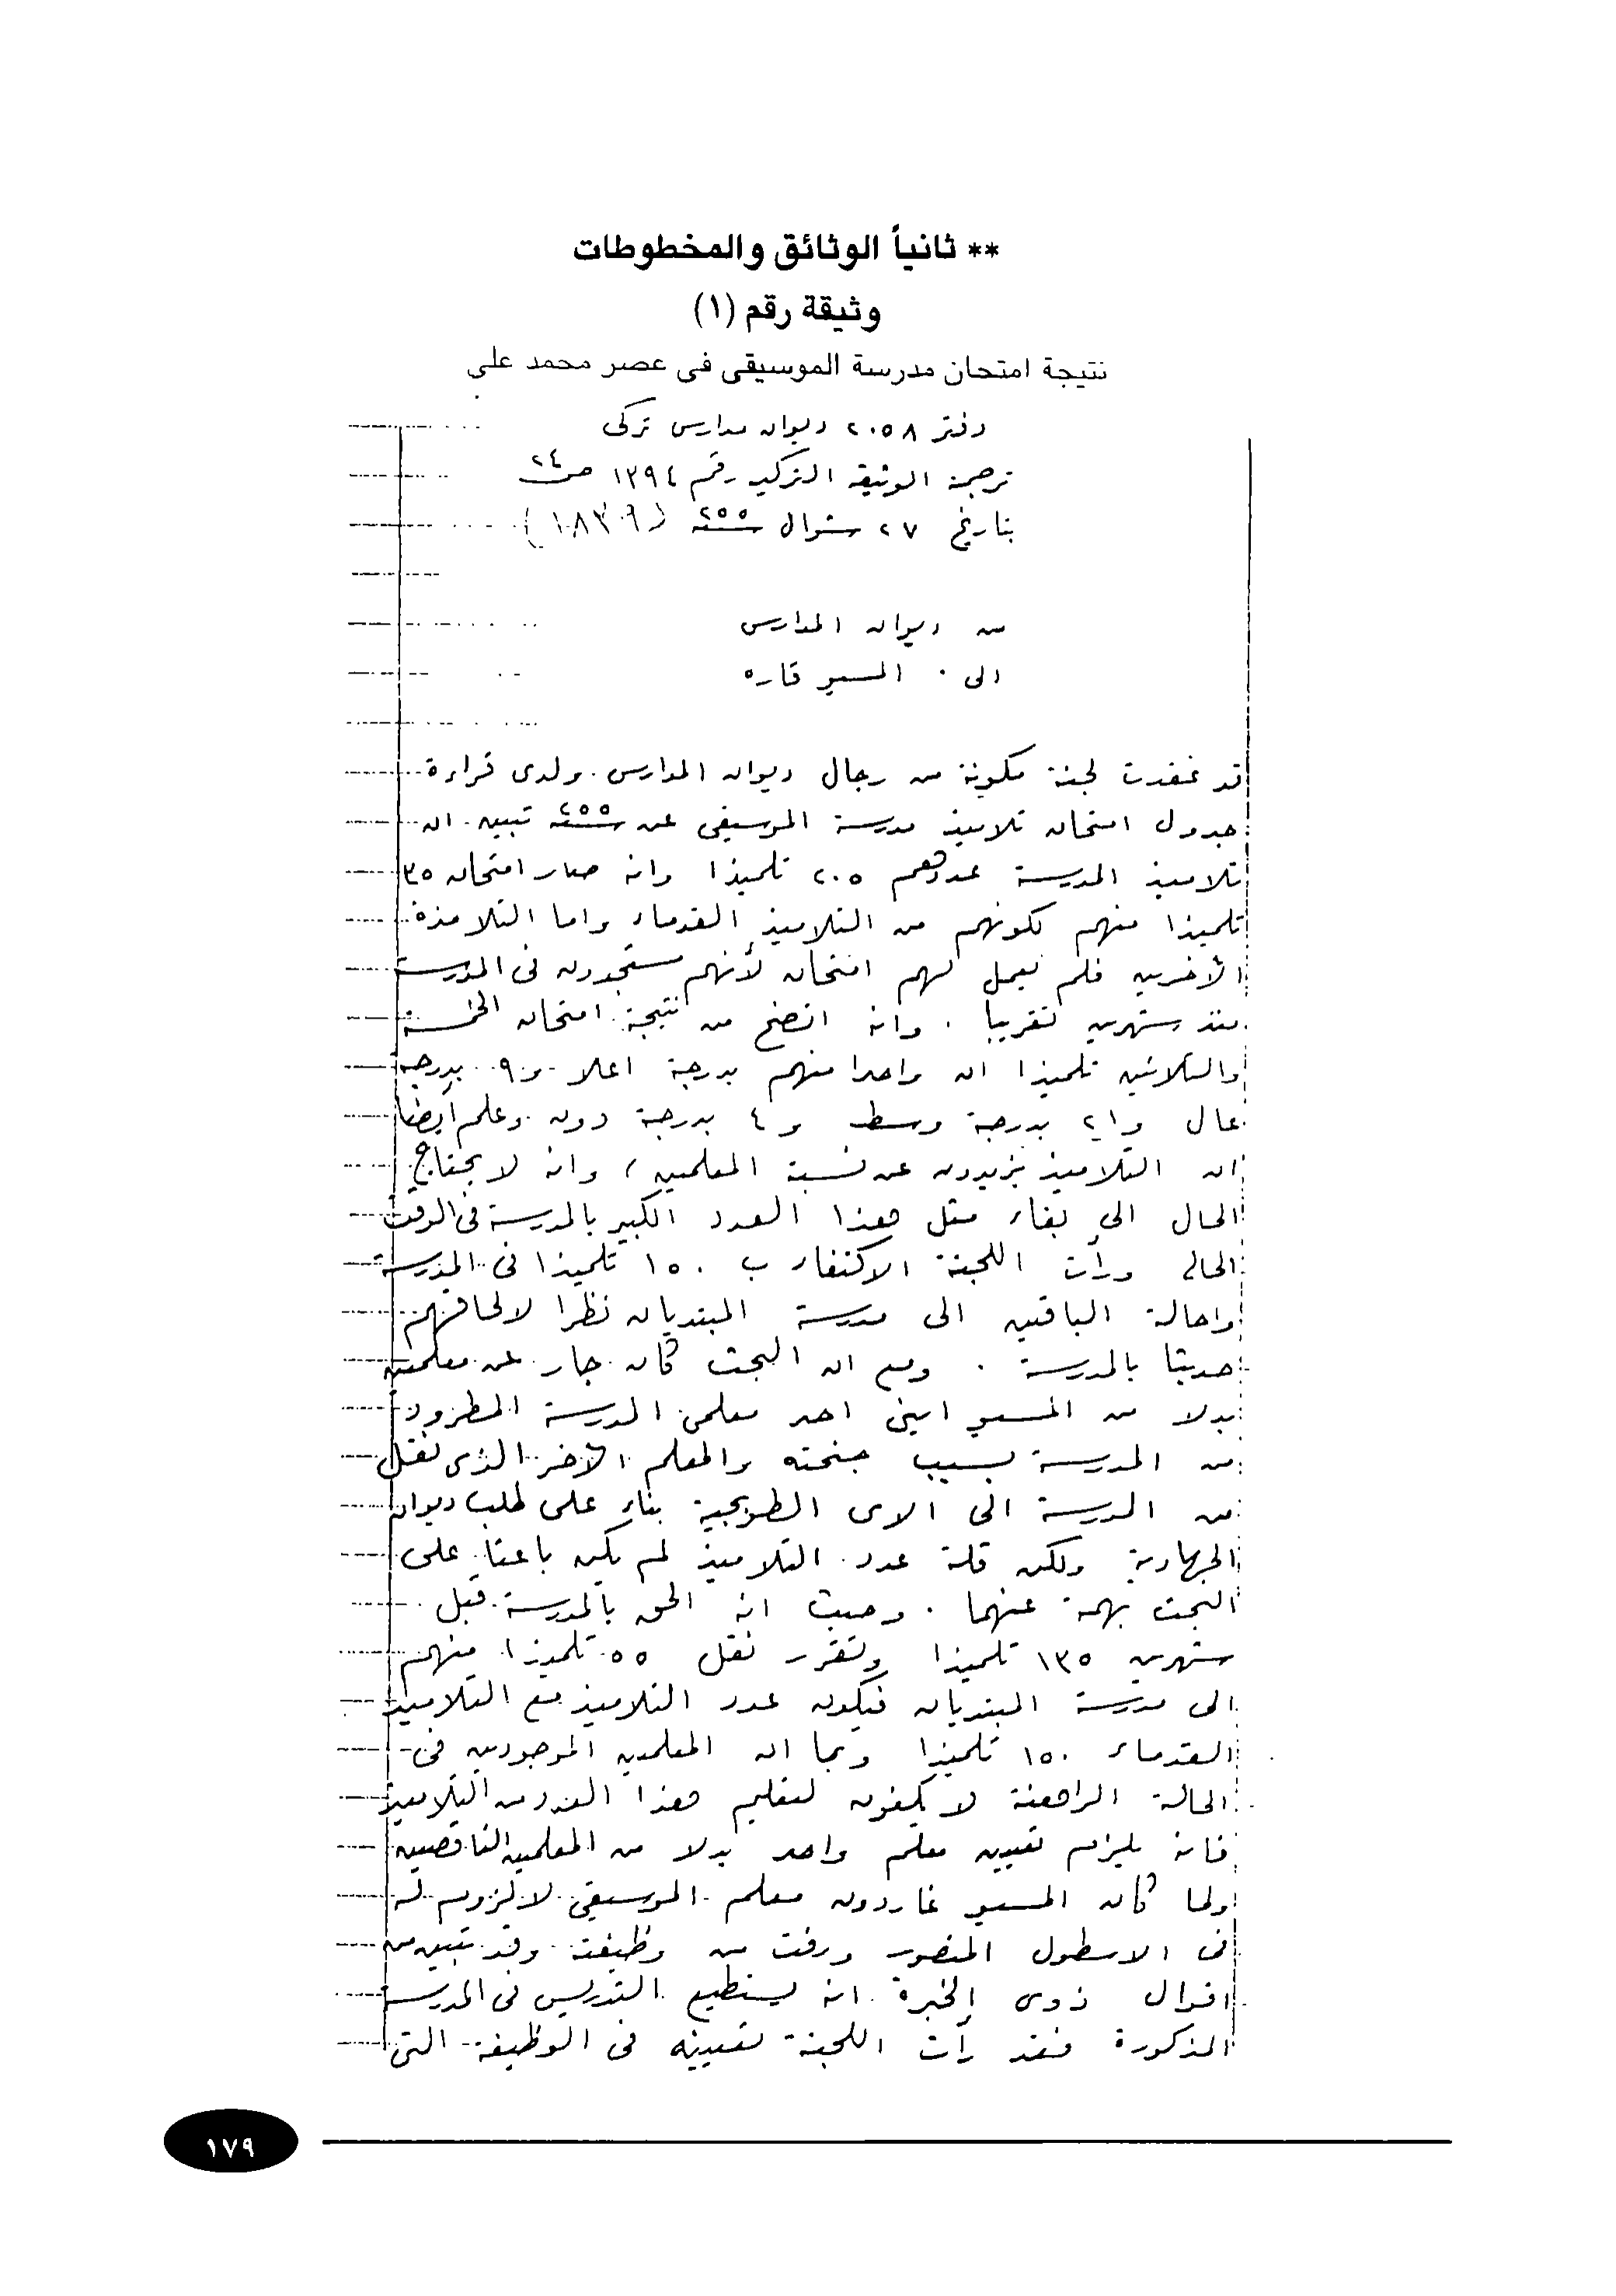 ** ثانياً الوثائق والمخطوطات
وثيقة رقم (١)
نتيجة امتحان مدرسة الموسيقى فى عصر محمد على
دفتر ٢٠٥٨ ديوان مدارس تركى
ترجمة الوثيقة التركية رقم ١٣٩٤ ص ٢٤
بتاريخ ٢٧ شوال سنة ٢٥٥ (١٨٣٩)
من ديوان المدارس
الى . المسيو قاره
قد عقدت لجنة مكونة من رجال ديوان المدارس . ولدى قراءة
جدول امتحان تلاميذ مدرسة الموسيقى عن سنة ٢٥٥ تبين ان
تلاميذ المدرسة عددهم ٢٠٥ تلميذا وانه صار امتحان ٣٥
تلميذا منهم لكونهم من التلاميذ القدماء واما التلامذة
الأخرين فلم يعمل لهم امتحان لأنهم مستجدون فى المدرسة
منذ شهرين تقريبا . وانه اتضح من نتيجة امتحان الخمسة
والثلاثين تلميذا ان واحدا منهم بدرجة اعلا و٩ بدرجة
عال و٢١ بدرجة وسط و٤ بدرجة دون وعلم أيضا
ان التلاميذ يزيدون عن نسبة المعلمين ، وانه لا يحتاج
الحال الى بقاء مثل هذا العدد الكبير بالمدرسة فى الوقت
الحالى ورأت اللجنة الاكتفاء ب ١٥٠ تلميذا فى المدرسة
واحالة الباقين الى مدرسة المبتديان نظرا لالحاقهم
حديثا بالمدرسة . ومع ان البحث كان جار عن معلمين
بدلا من المسيو احد معلمى المدرسة المطرود
من المدرسة بسبب جنحته والمعلم الأخر الذى نقل
من المدرسة الى الاى الطوبجية بناء على طلب ديوان
الجهادية ولكن قلة عدد التلاميذ لم يكن باعثا على
البحث بهمة عنهما . وحيث انه الحق بالمدرسة قبل
شهرين ١٣٥ تلميذا وتقرر نقل ٥٥ تلميذا منهم
الى مدرسة المبتديان فيكون عدد التلاميذ مع التلاميذ
القدماء ١٥٠ تلميذا وبما ان المعلمين الموجودين فى
الحالة الراهنة لا يكفون لتعليم هذا العدد من التلاميذ
فانه يلزم تعيين معلم واحد بدلا من المعلمين الناقصين
ولما كان المسيو غاردون معلم الموسيقى لا لزوم له
فى الاسطول المنصور ورفت من وظيفته وقد تبين من
اقوال ذوى الخبرة انه يستطيع التدريس فى المدرسة
المذكورة فقد رأت اللجنة تعيينه فى الوظيفة التى
١٧٩